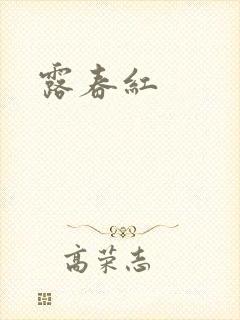 露春紅
高荣志